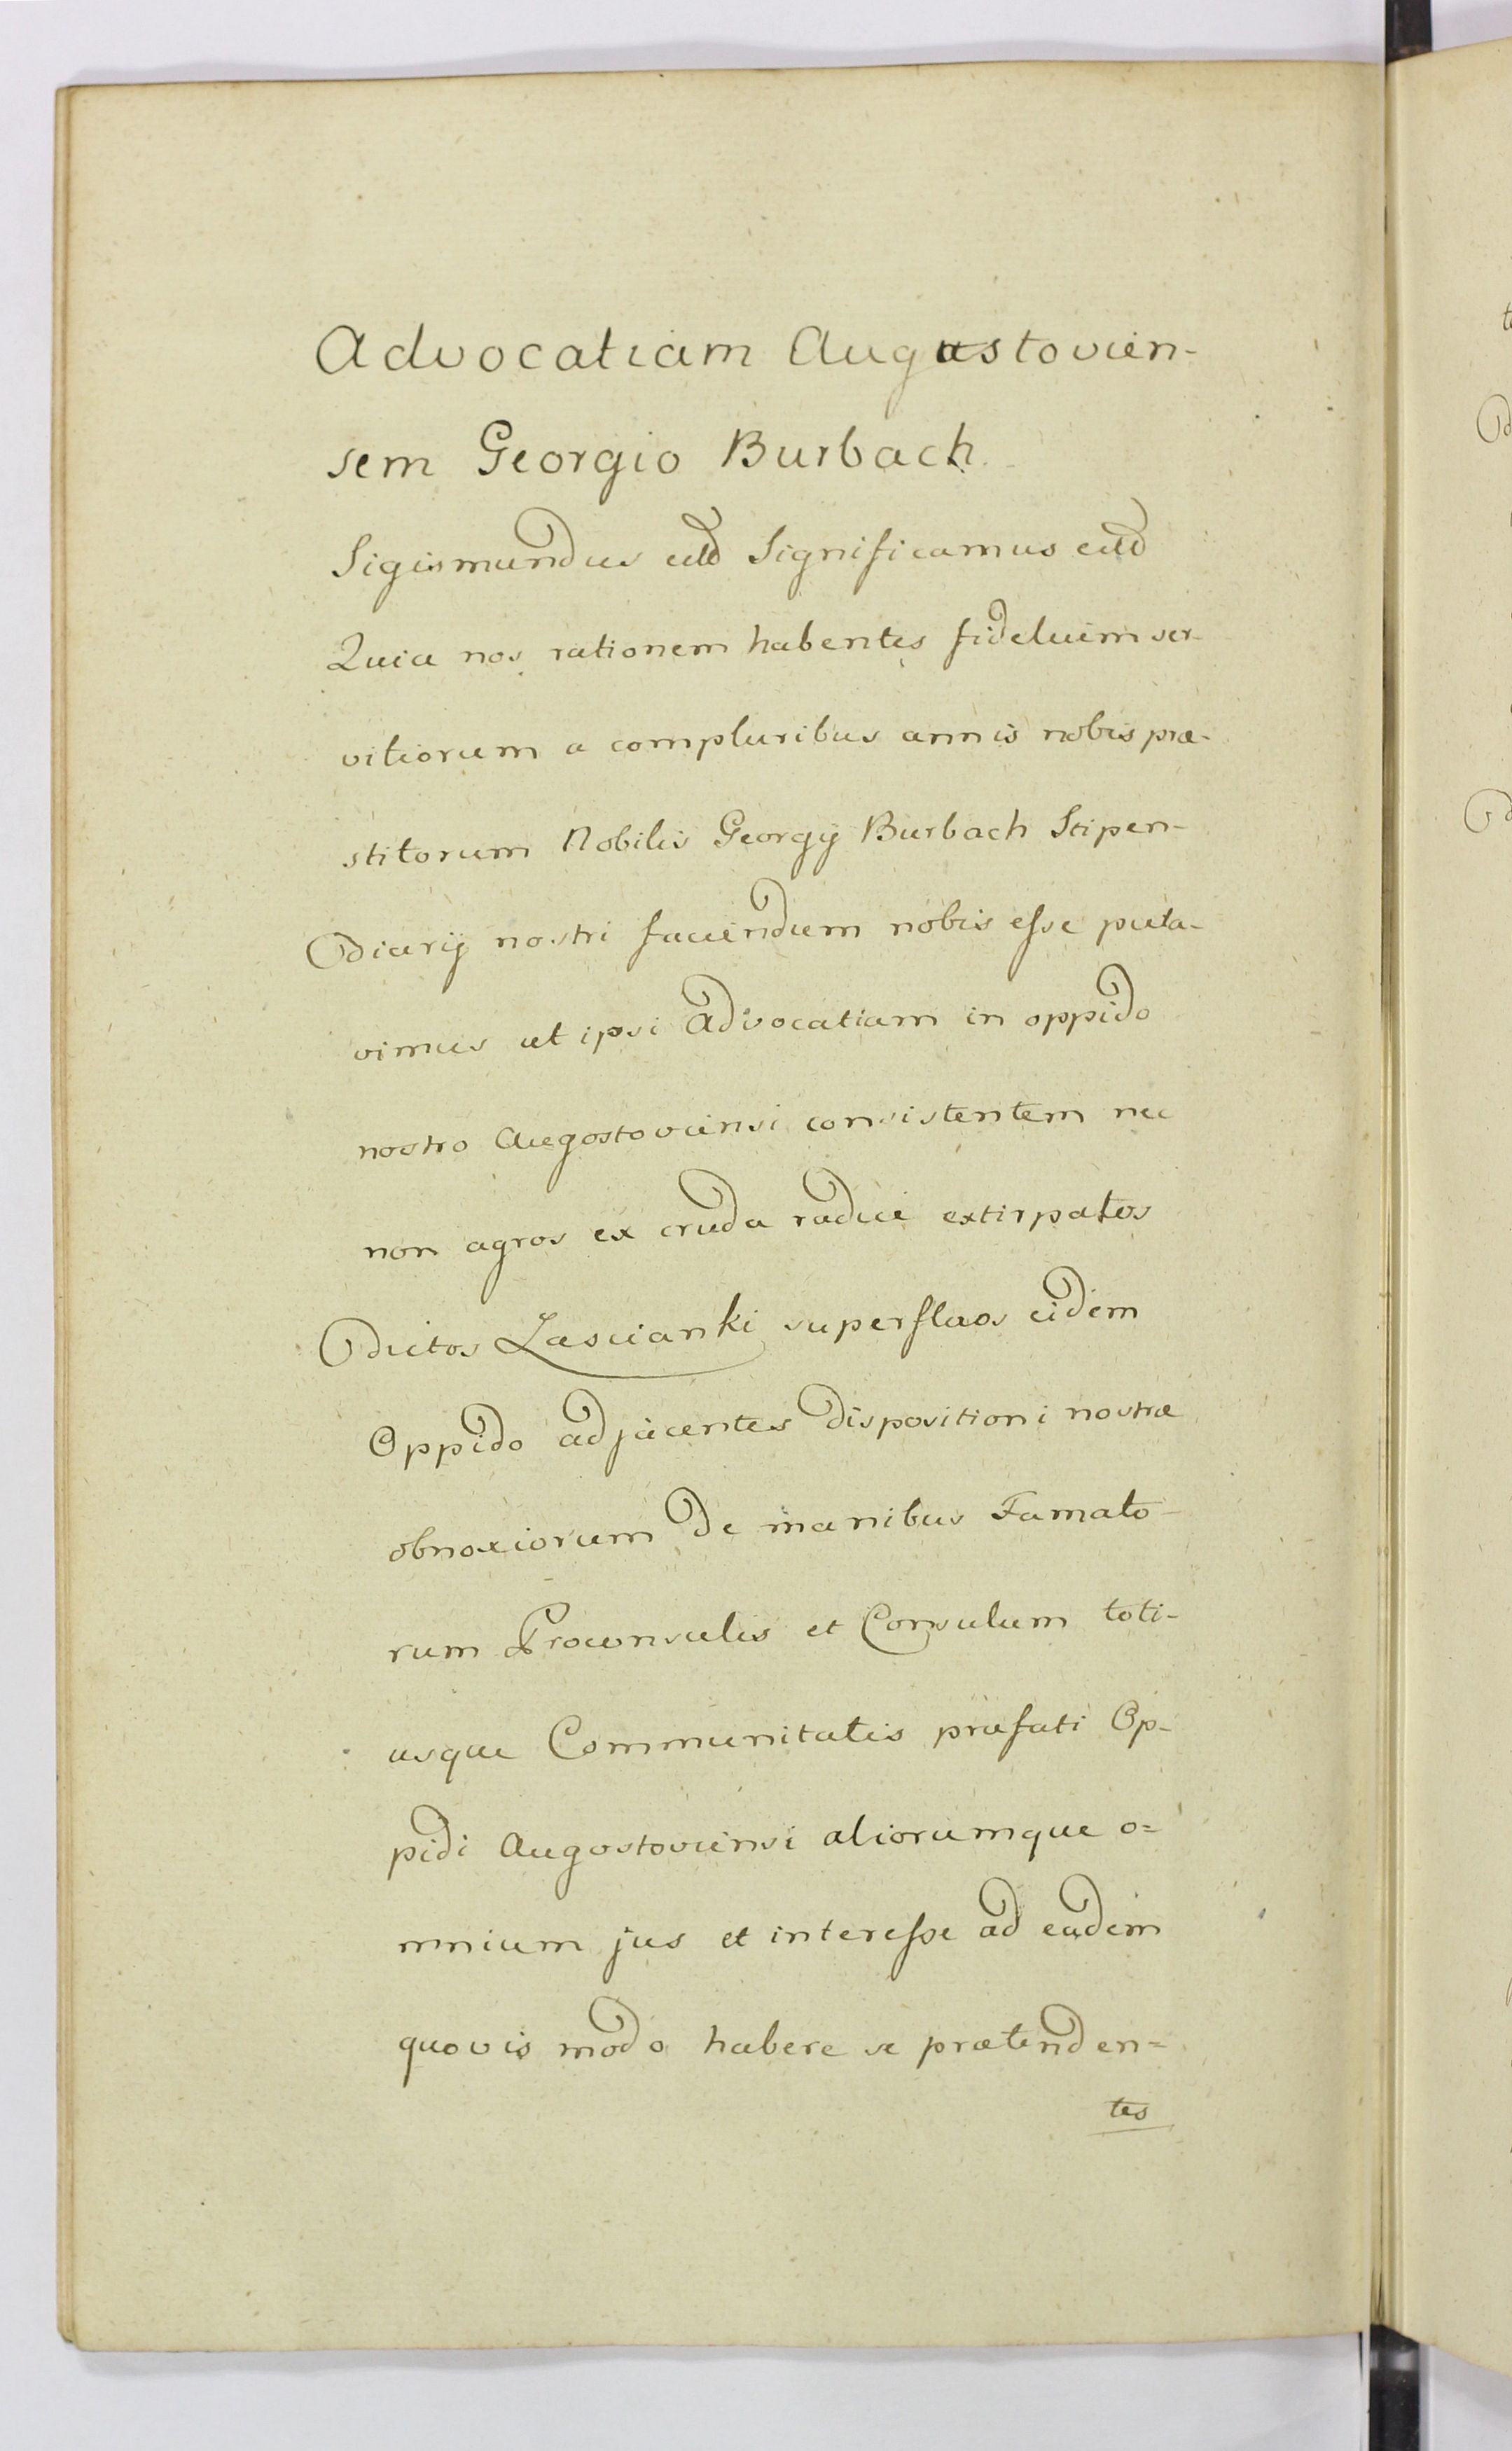 Advocatiam Augustovien-
sem Georgio Burbach
Sigismundus Significamus
Quia nos rationem habentes fidelium ser-
vitiorum a compluribus annis nobis præ-
stitorum Nobilis Georgij Burbach Stipen-
diarij nostri faciendum nobis esse puta-
vimus ut ipsi Advocatiam in oppido
nostro Augostoviensi consistentem nec
non agros ex cruda radice extirpatos
dictos Zascianki superfluos eidem
Oppido adjacentes dispositioni nostræ
obnoxiorum de manibus Famato-
rum Proconsulis et Consulum toti-
usque Communitatis præfati Op-
pidi Augostoviensi aliorumque o=
mnium jus et interesse ad eadem
quovis modo habere se prætenden=
tes